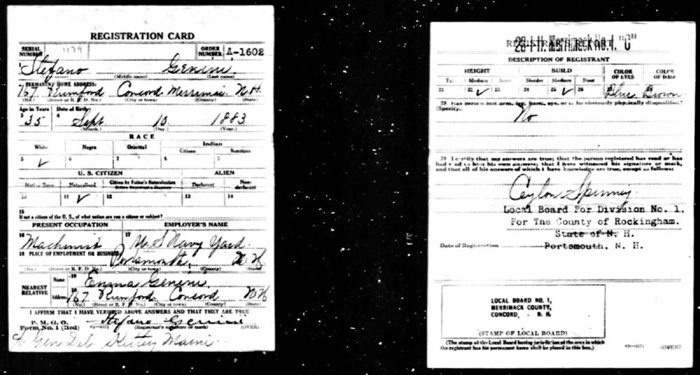 REGISTRATION CARD
SERIAL NUMBER 1179 ORDER NUMBER A-1602
1 Stefano Genini
(Middle name) (Last name)
2 PERMANENT HOME ADDRESS:
167 Rumford Concord Merrimac N.H.
(No.) (Street or R. F. D. No.) (City or town) (County) (State)
Age in Years Date of Birth
3 35 4 Sept 10 1883
(Month.) (Day.) (Year.)
RACE
White Negro Oriental Indian
Citizen Noncitizen
5 ✓ 6 7 8 9
U. S. CITIZEN ALIEN
Native Born Naturalized Citizen by Father's Naturalization Before Registrant's Majority Declarant Non-declarant
10 11 ✓ 12 13 14
15
If not a citizen of the U. S., of what nation are you a citizen or subject?
PRESENT OCCUPATION EMPLOYER'S NAME
16 Machinist 17 U.S Navy Yard
18 PLACE OF EMPLOYMENT OR BUSINESS
Portsmouth N H
(No.) (Street or R. F. D. No.) (City or town) (County) (State)
NEAREST RELATIVE Name 19 Emma Genini
Address 20 167 Rumford Concord N H
(No.) (Street or R. F. D. No.) (City or town) (State)
I AFFIRM THAT I HAVE VERIFIED ABOVE ANSWERS AND THAT THEY ARE TRUE
P. M. G. O.
Form No. 1 (Red) Stefano Genini
(Registrant's signature or mark) (OVER)
Gen Del Kittery Maine
REGISTRAR'S REPORT
DESCRIPTION OF REGISTRANT
HEIGHT BUILD COLOR OF EYES COLOR OF HAIR
Tall Medium Short Slender Medium Stout
21 22 ✓ 23 24 25 ✓ 26 27 Blue 28 Brown
29 Has person lost arm, leg, hand, eye, or is he obviously physically disqualified?
(Specify.)
No
30 I certify that my answers are true; that the person registered has read or has
had read to him his own answers; that I have witnessed his signature or mark,
and that all of his answers of which I have knowledge are true, except as follows:
Ceylon Spinney
Local Board For Division No. 1,
For The County of Rockingham.
State of N. H.
Date of Registration Portsmouth, N. H.
LOCAL BOARD NO. 1,
MERRIMACK COUNTY,
CONCORD, N. H.
(STAMP OF LOCAL BOARD)
(The stamp of the Local Board having jurisdiction of the area in which
the registrant has his permanent home shall be placed in this box.)
(OVER)